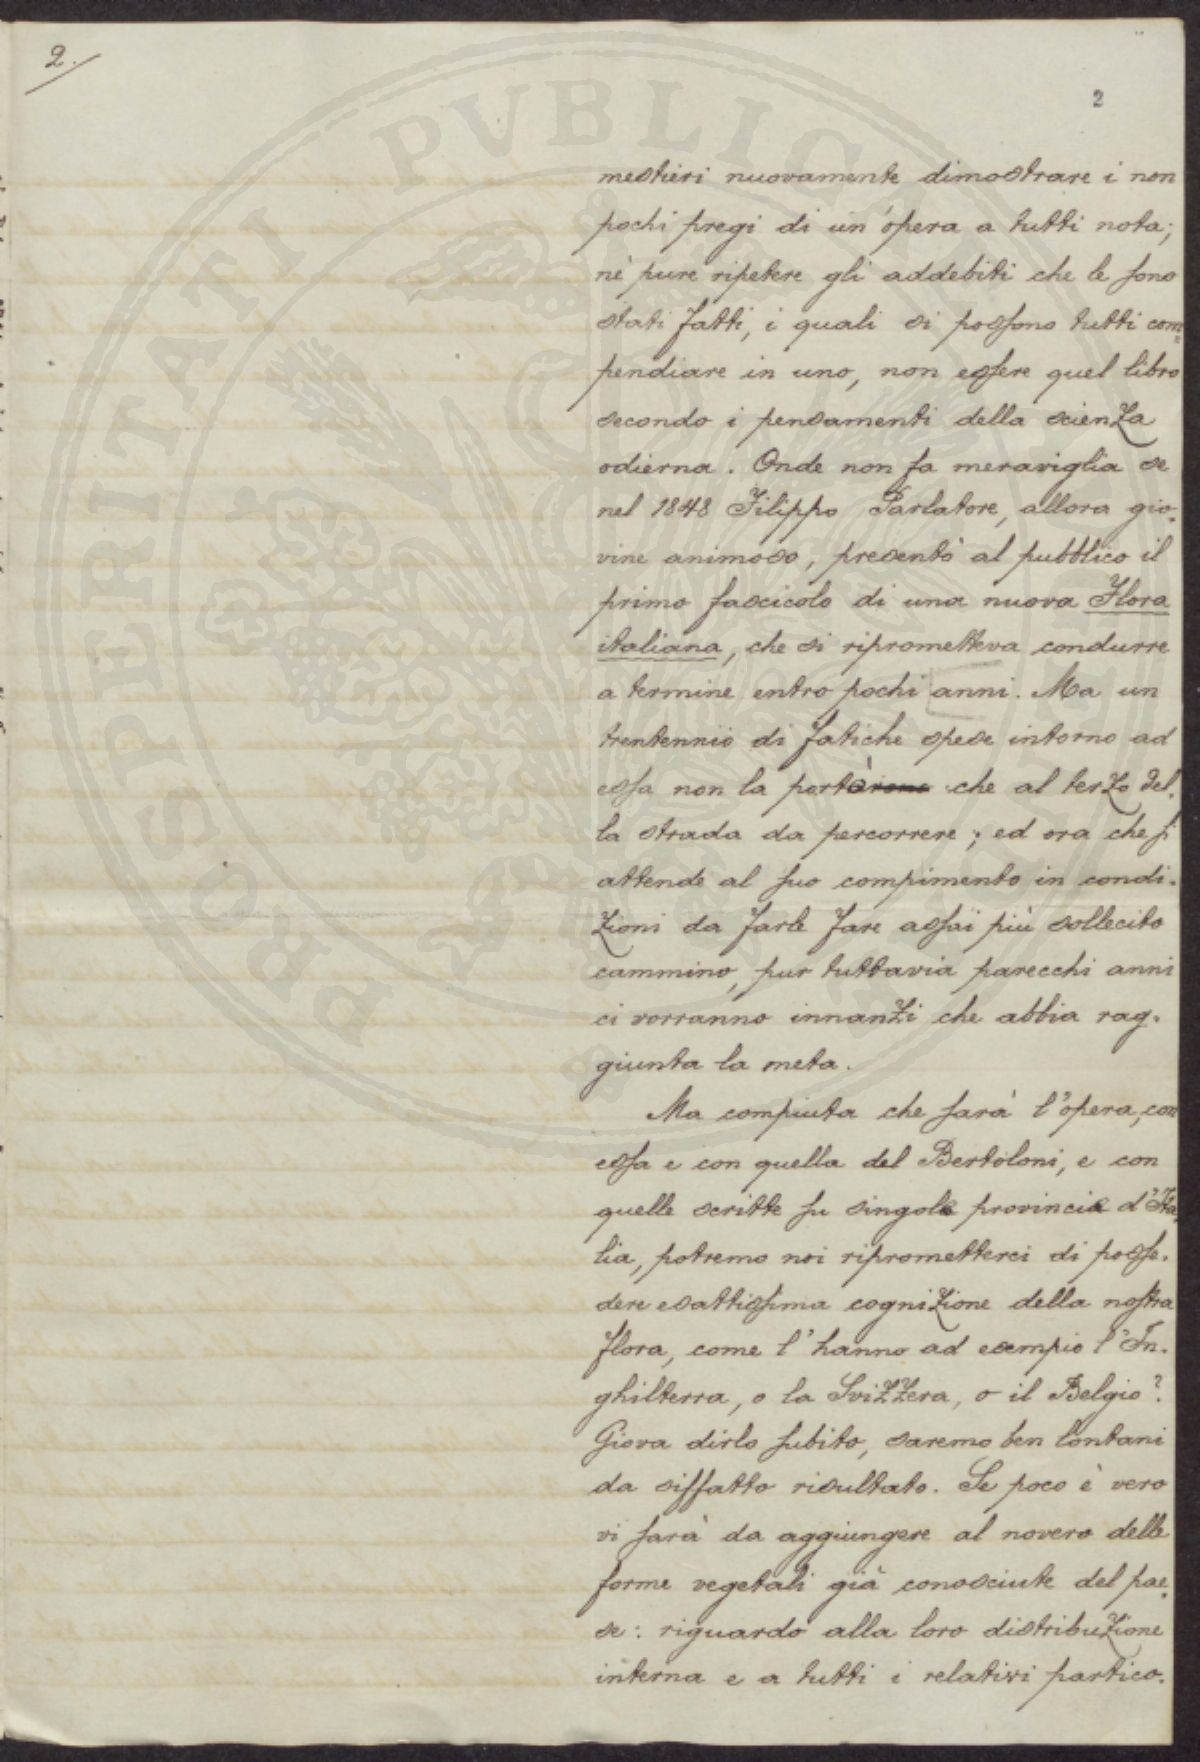 2.
2
PROSPERITATI PVBLICAE
mestieri nuovamente dimostrare i non
pochi pregi di un'opera a tutti nota;
nè pure ripetere gli addebiti che le sono
stati fatti, i quali si possono tutti com=
pendiare in uno, non essere quel libro
secondo i pensamenti della scienza
odierna. Onde non fa meraviglia se
nel 1848 Filippo Parlatore, allora gio-
vine animoso, presentò al pubblico il
primo fascicolo di una nuova Flora
italiana, che si riprometteva condurre
a termine entro pochi anni. Ma un
trentennio di fatiche spese intorno ad
essa non la portò che al terzo del-
la strada da percorrere; ed ora che si
attende al suo compimento in condi-
zioni da farle fare assai più sollecito
cammino, pur tuttavia parecchi anni
ci vorranno innanzi che abbia rag-
giunta la meta.
Ma compiuta che sarà l'opera, con
essa e con quella del Bertoloni, e con
quelle scritte su singole provincie d'Ita-
lia, potremo noi riprometterci di posse-
dere esattissima cognizione della nostra
flora, come l'hanno ad esempio l'In-
ghilterra, o la Svizzera, o il Belgio?
Giova dirlo subito, saremo ben lontani
da siffatto risultato. Se poco è vero
vi sarà da aggiungere al novero delle
forme vegetali già conosciute del pae-
se: riguardo alla loro distribuzione
interna e a tutti i relativi partico-